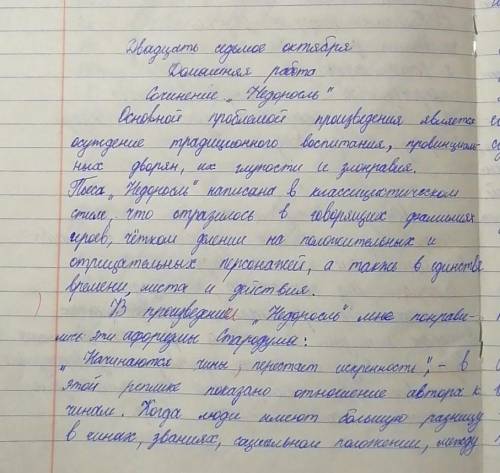 Двадцать седьмое октября
Домашняя работа
Сочинение „Недоросль"
Основной проблемой произведения является
осуждение традиционного воспитания, провинциаль-
ных дворян, их глупости и злонравия.
Пьеса „Недоросль" написана в классицистическом
стиле, что отразилось в говорящих фамилиях
героев, чётком делении на положительных и
отрицательных персонажей, а также в единстве
времени, места и действия.
В произведение „Недоросль" мне понрави-
лись эти афоризмы Стародума:
„Начинаются чины, перестаёт искренность", - в
этой реплике показано отношение автора к
чинам. Когда люди имеют большую разницу
в чинах, званиях, социальном положении, между